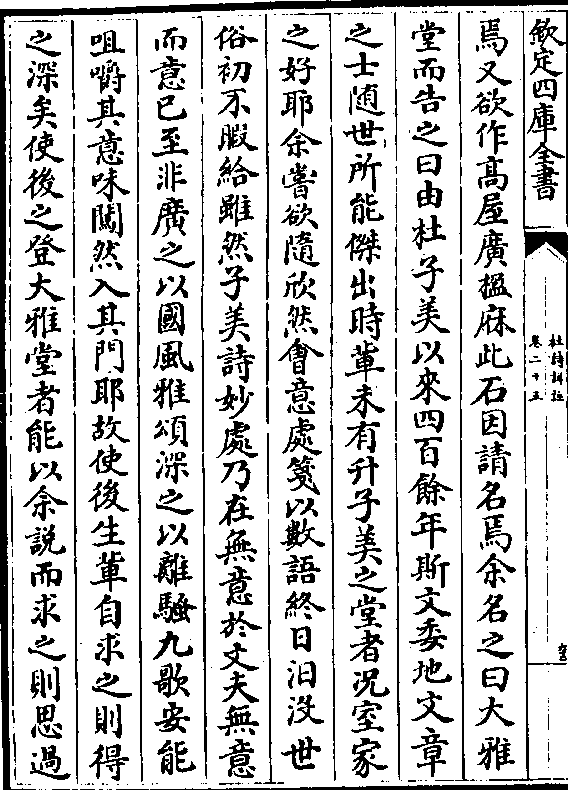 欽定四庫全書
杜詩詳註
卷二十五
焉又欲作髙屋廣楹庥此石因請名焉余名之曰大雅
堂而告之曰由杜子美以來四百餘年斯文委地文章
之士随世所能傑出時輩未有升子美之堂者况室家
之好耶余嘗欲隨欣然會意處箋以數語終日汩没世
俗初不暇給雖然子美詩妙處乃在無意於文夫無意
而意已至非廣之以國風雅頌深之以離騷九歌安能
咀嚼其意味闖然入其門耶故使後生輩自求之則得
之深矣使後之登大雅堂者能以余説而求之則思過